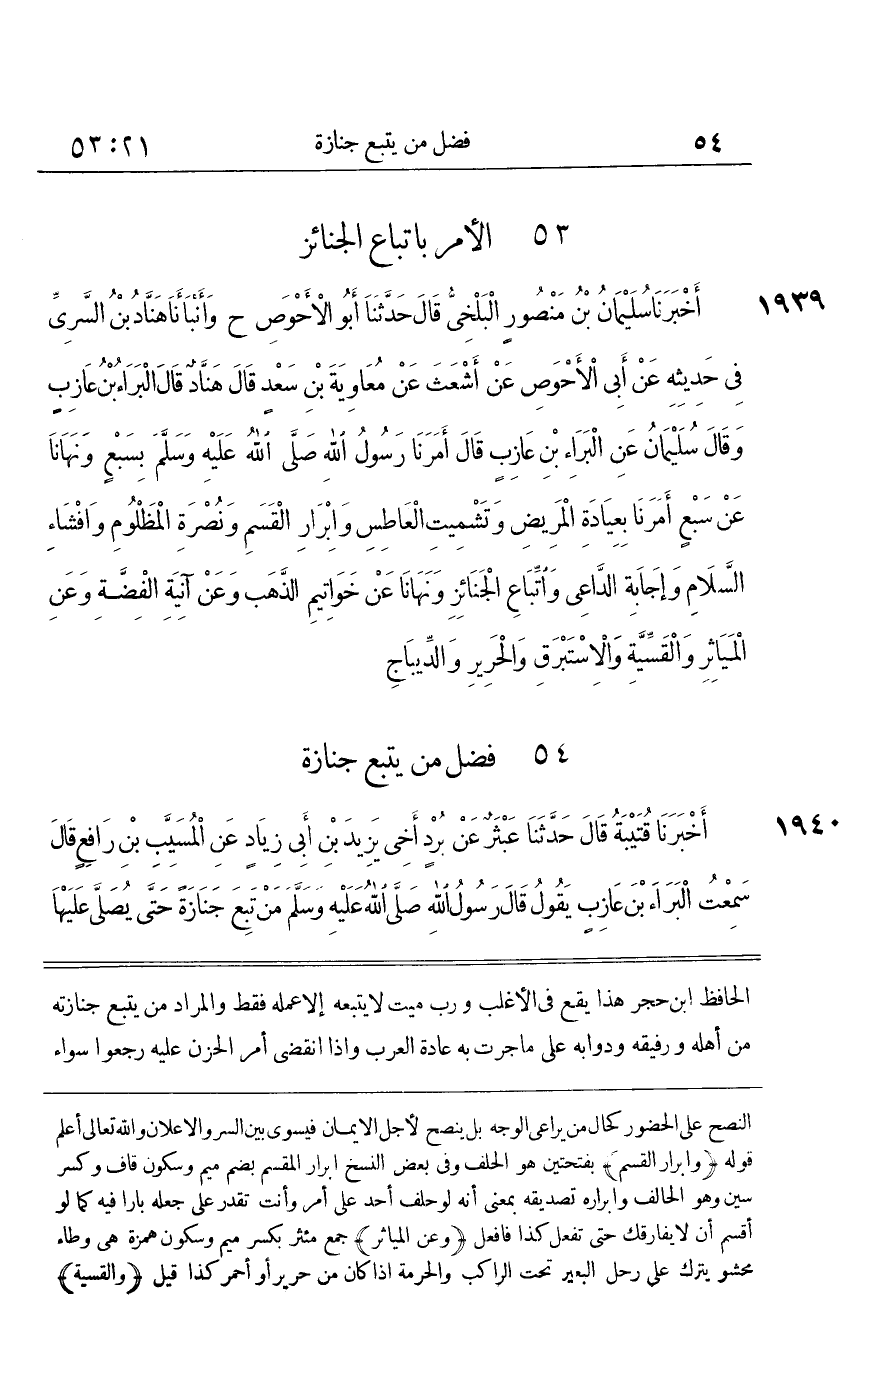 ٥٤ فضل من يتبع جنازة ٥٣:٢١
٥٣ الأمر باتباع الجنائز
١٩٣٩ أَخْبَرَنَا سُلَيْمَانُ بْنُ مَنْصُورٍ الْبَلْخِىُّ قَالَ حَدَّثَنَا أَبُو الْأَحْوَصِ ح وَأَنْبَأَنَا هَنَّادُ بْنُ السَّرِىِّ
فِى حَدِيثِهِ عَنْ أَبِى الْأَحْوَصِ عَنْ أَشْعَثَ عَنْ مُعَاوِيَةَ بْنِ سَعْدٍ قَالَ هَنَّادٌ قَالَ الْبَرَاءُ بْنُ عَازِبٍ
وَقَالَ سُلَيْمَانُ عَنِ الْبَرَاءِ بْنِ عَازِبٍ قَالَ أَمَرَنَا رَسُولُ اللهِ صَلَّى اللهُ عَلَيْهِ وَسَلَّمَ بِسَبْعٍ وَنَهَانَا
عَنْ سَبْعٍ أَمَرَنَا بِعِيَادَةِ الْمَرِيضِ وَتَشْمِيتِ الْعَاطِسِ وَإِبْرَارِ الْقَسَمِ وَنُصْرَةِ الْمَظْلُومِ وَإِفْشَاءِ
السَّلَامِ وَإِجَابَةِ الدَّاعِى وَاتِّبَاعِ الْجَنَائِزِ وَنَهَانَا عَنْ خَوَاتِيمِ الذَّهَبِ وَعَنْ آنِيَةِ الْفِضَّةِ وَعَنِ
الْمَيَاثِرِ وَالْقَسِّيَّةِ وَالْإِسْتَبْرَقِ وَالْحَرِيرِ وَالدِّيبَاجِ
٥٤ فضل من يتبع جنازة
١٩٤٠ أَخْبَرَنَا قُتَيْبَةُ قَالَ حَدَّثَنَا عَبْثَرٌ عَنْ بُرْدٍ أَخِى يَزِيدَ بْنِ أَبِى زِيَادٍ عَنِ الْمُسَيَّبِ بْنِ رَافِعٍ قَالَ
سَمِعْتُ الْبَرَاءَ بْنَ عَازِبٍ يَقُولُ قَالَ رَسُولُ اللهِ صَلَّى اللهُ عَلَيْهِ وَسَلَّمَ مَنْ تَبِعَ جَنَازَةً حَتَّى يُصَلَّى عَلَيْهَا
الحافظ ابن حجر هذا يقع فى الأغلب و رب ميت لايتبعه إلا عمله فقط والمراد من يتبع جنازته
من أهله و رفيقه ودوابه على ماجرت به عادة العرب واذا انقضى أمر الحزن عليه رجعوا سواء
النصح على الحضور كحال من يراعى الوجه بل ينصح لأجل الايمان فيسوى بين السر والاعلان والله تعالى أعلم
قوله ﴿وابرار القسم﴾ بفتحتين هو الحلف وفى بعض النسخ ابرار المقسم بضم ميم وسكون قاف وكسر
سين وهو الحالف وابراره تصديقه بمعنى أنه لو حلف أحد على أمر وأنت تقدر على جعله بارا فيه كما لو
أقسم أن لايفارقك حتى تفعل كذا فافعل ﴿وعن المياثر﴾ جمع مئثر بكسر ميم وسكون همزة هى وطاء
محشو يترك على رحل البعير تحت الراكب والحرمة اذا كان من حرير أو أحمر كذا قيل ﴿والقسية﴾